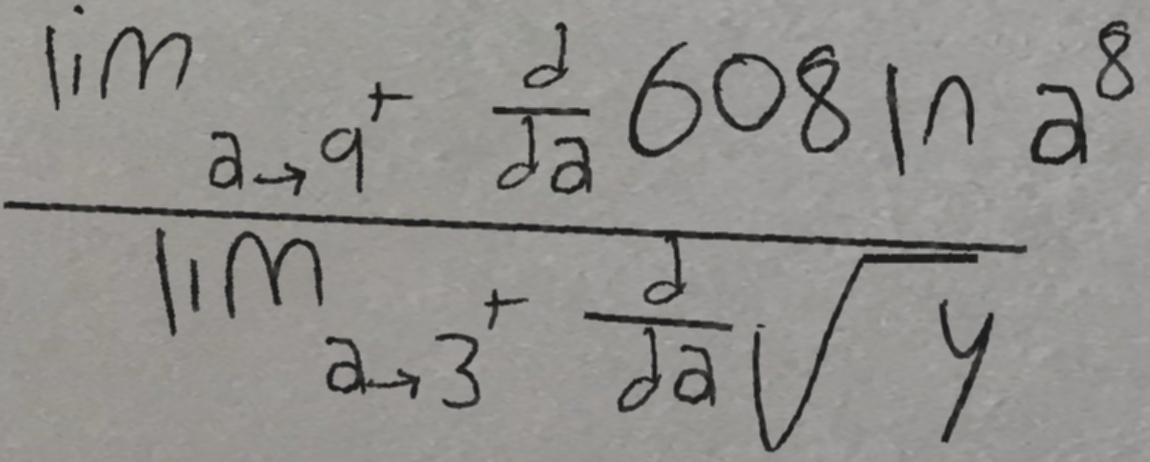 lim a→9⁺ d/da 608 ln a⁸
lim a→3⁺ d/da √y